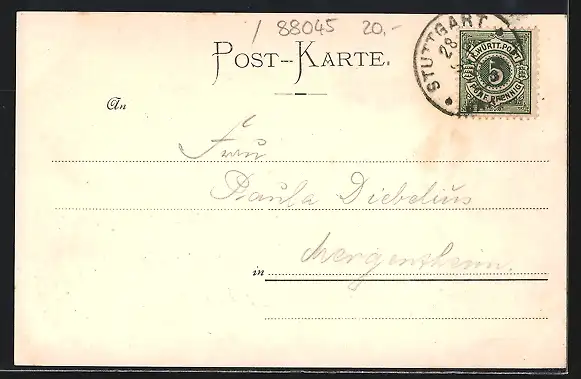 / 88045 20.-
POST-KARTE.
STUTTGART
28
K. WÜRTT. POST
5
FÜNF PFENNIG
An
Frau
Paula Diebelius
in Mergentheim.